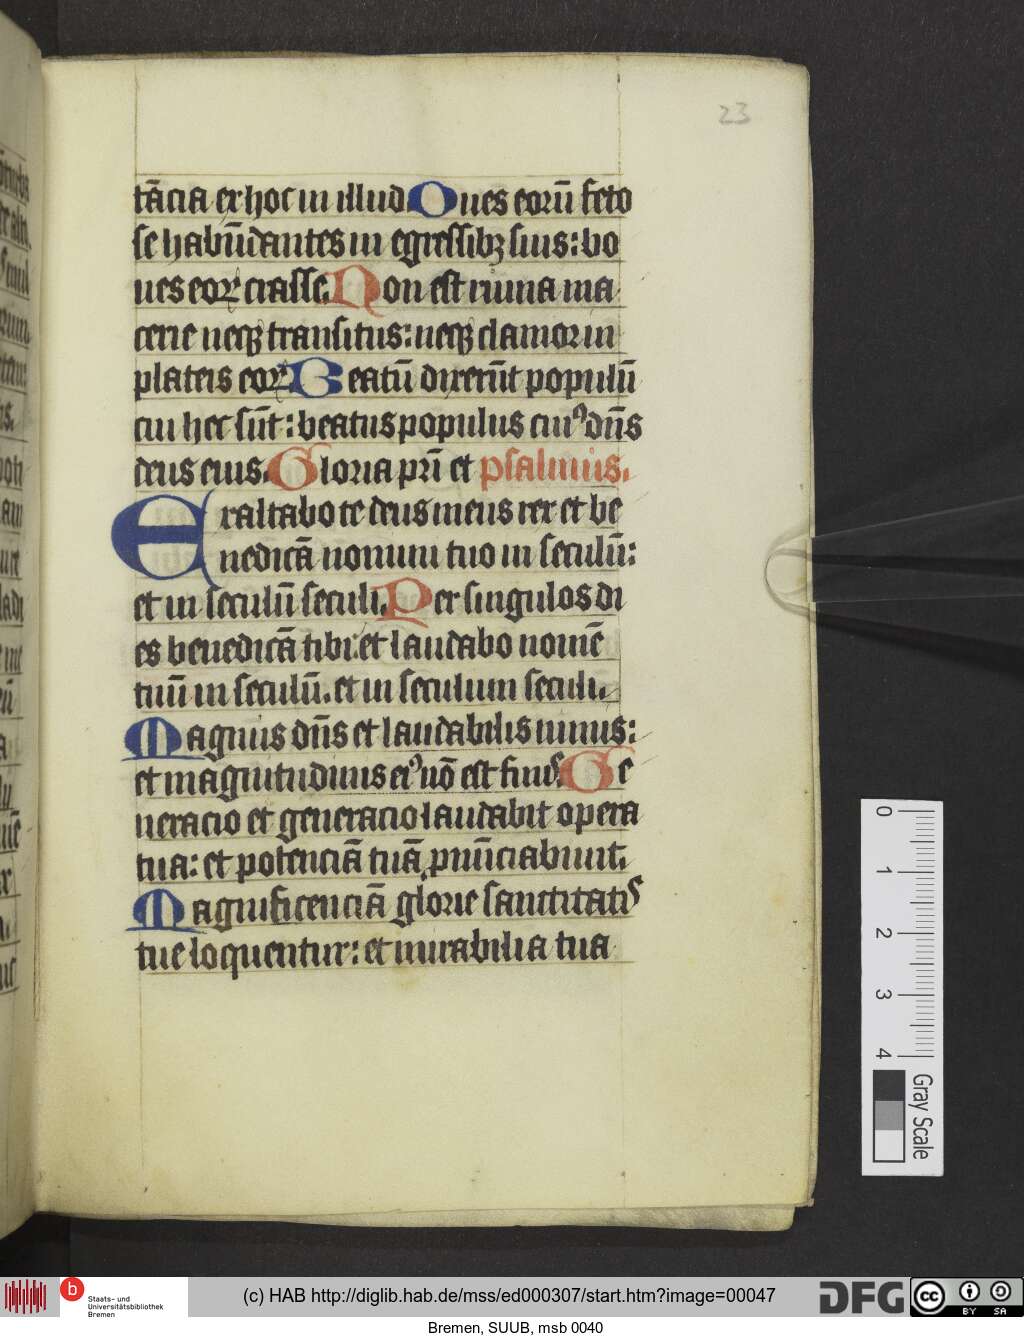 23
tācia ex hoc in illud. Oues eorū feto
se habūdantes in egressibꝫ suis: bo
ues eoꝝ crasse. Non est ruina ma
cerie neqꝫ transitus: neqꝫ clamor in
plateis eoꝝ. Beatū dixerūt populū
cui hec sūt: beatus populus cuiꝰ dn̄s
deus eius. Gloria pr̄i et psalmus.
Exaltabo te deus meus rex et be
nedicā nomini tuo in seculū:
et in seculū seculi. Per singulos di
es benedicā tibi: et laudabo nomē
tuū in seculū. et in seculum seculi.
Magnus dn̄s et laudabilis nimis:
et magnitudinis eiꝰ nō est finis. Ge
neracio et generacio laudabit opera
tua: et potenciā tuā ꝓnūciabunt.
Magnificenciā glorie sanctitatis
tue loquentur: et mirabilia tua
0
1
2
3
4
Gray Scale
b
Staats- und
Universitätsbibliothek
Bremen
(c) HAB http://diglib.hab.de/mss/ed000307/start.htm?image=00047
DFG
cc BY SA
Bremen, SUUB, msb 0040